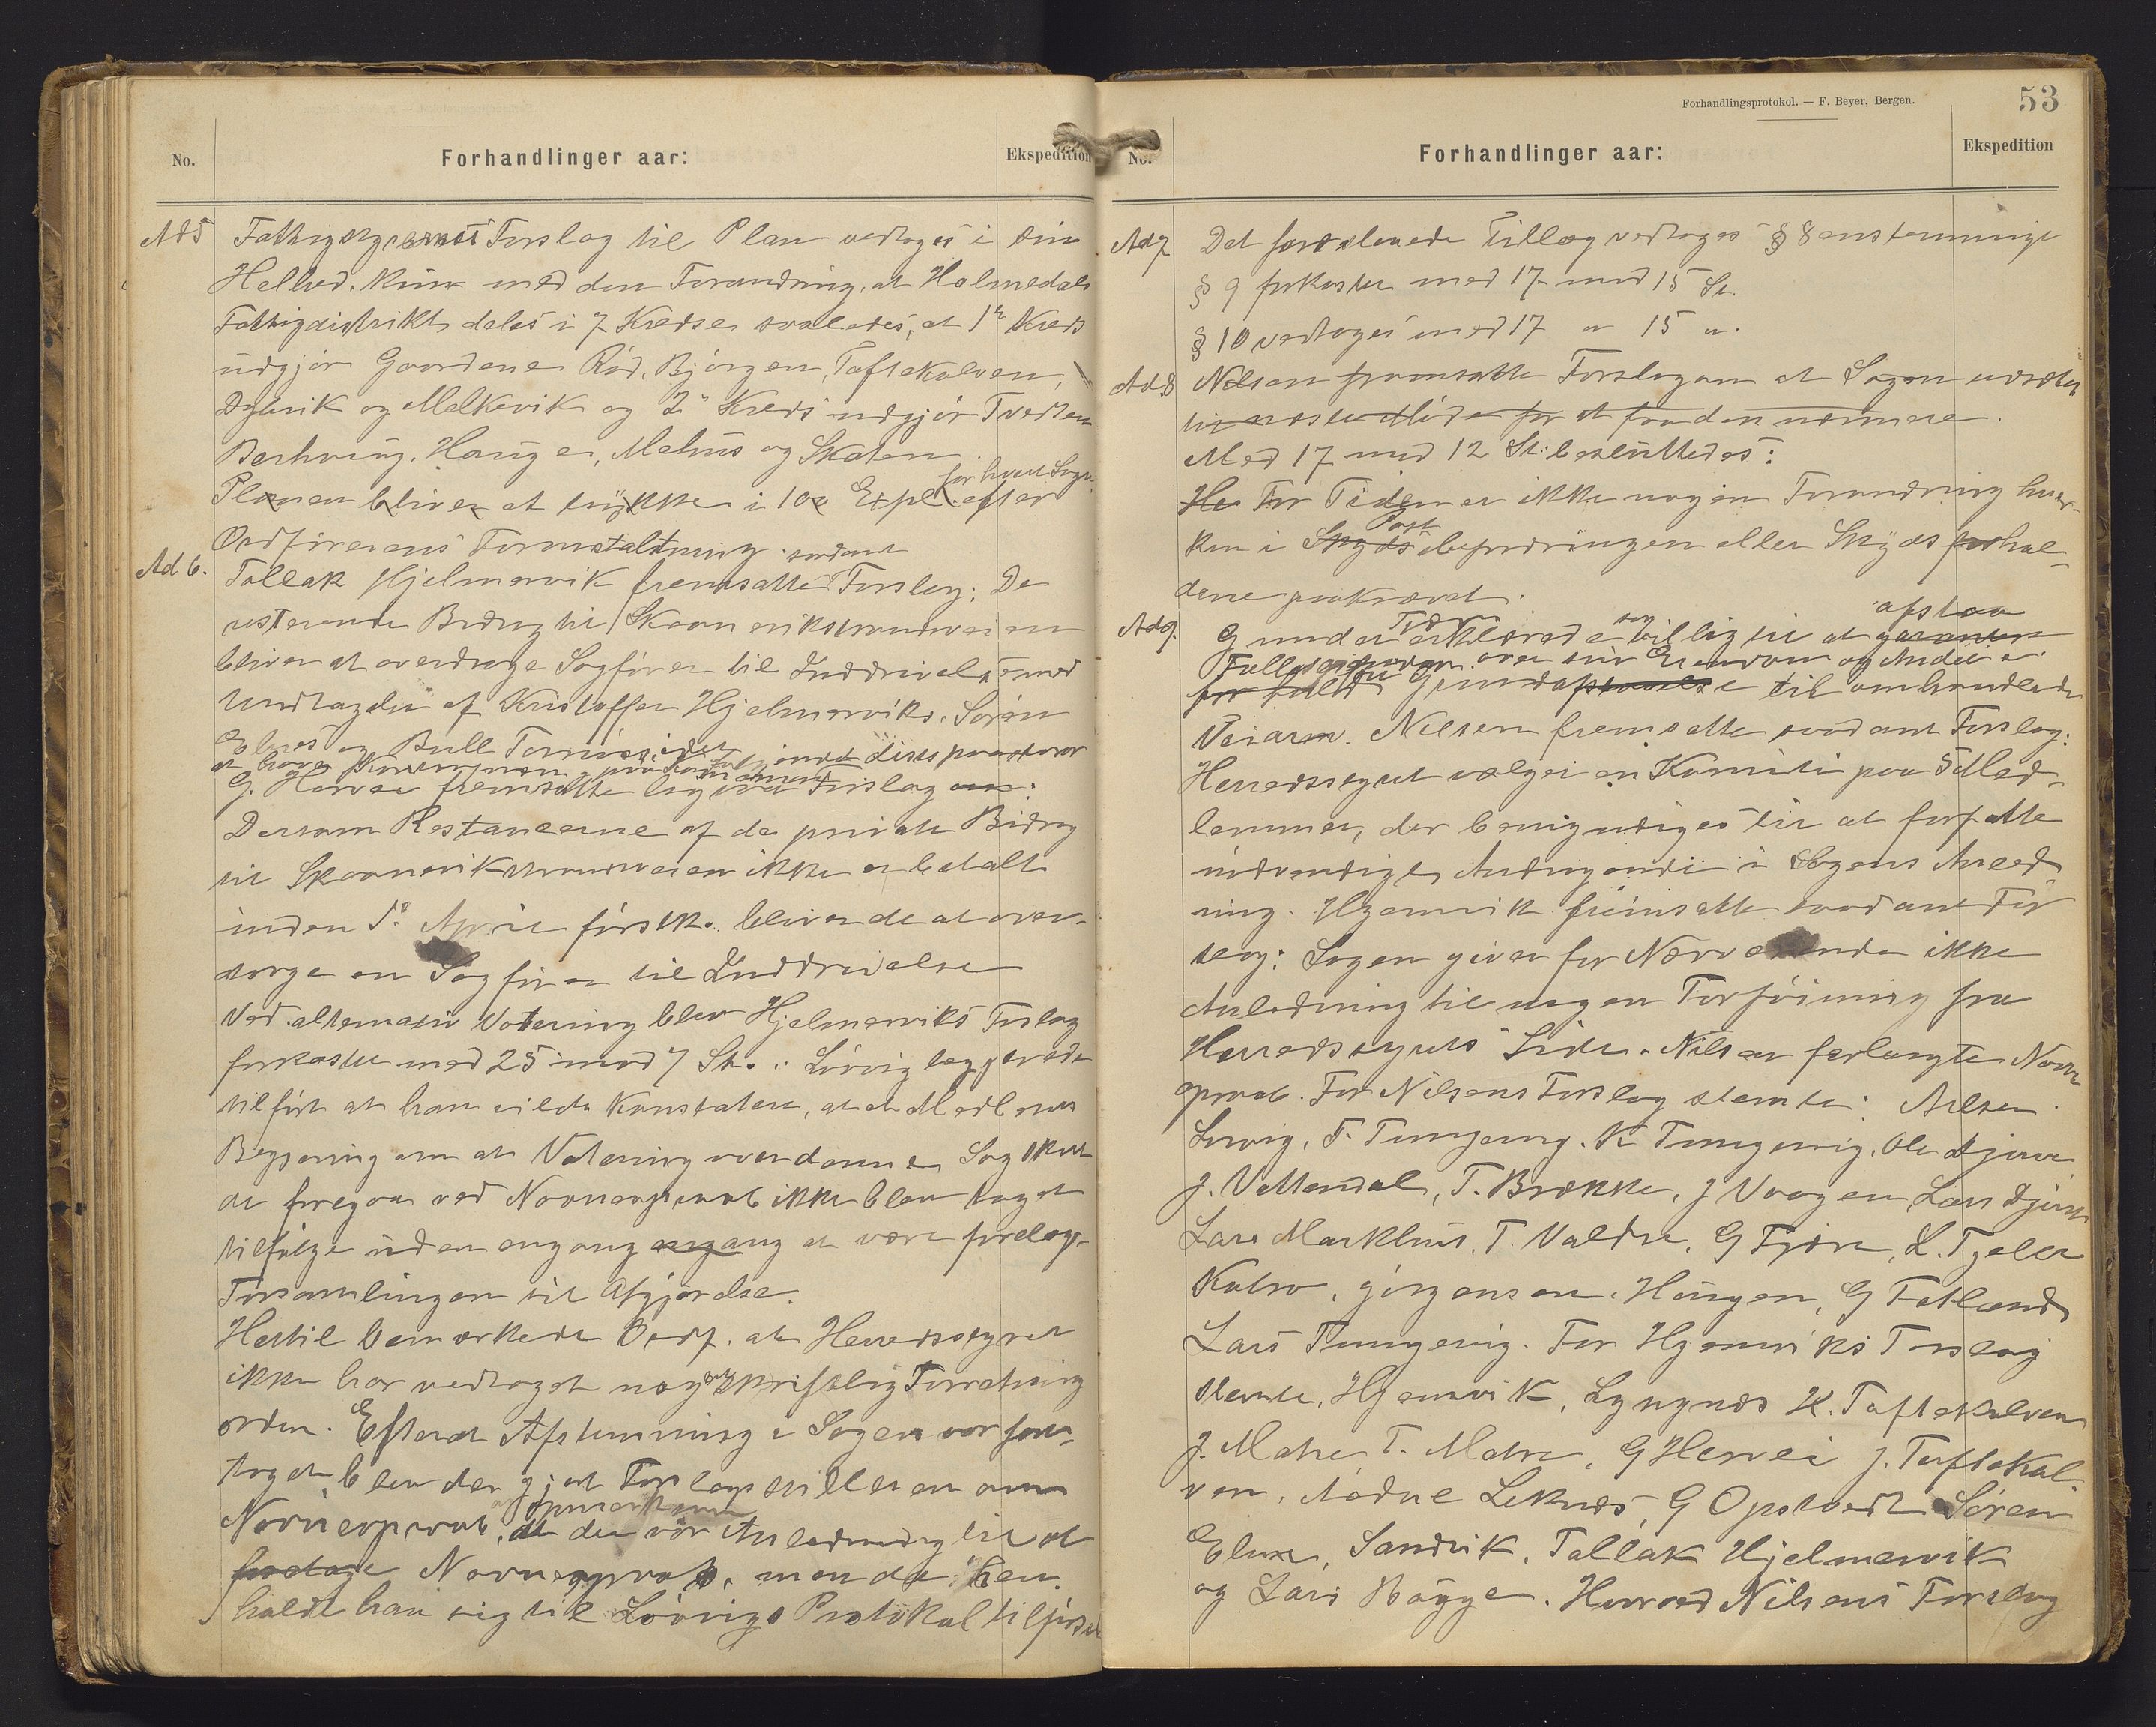 No.
Forhandlinger aar:
Ekspedition
Ad 5 Fattigstyrernes Forslag til Plan vedtoges i sin
Helhed. Kun med den Forandring, at Holmedals
Fattigdistrikt deles i 7 Kredse saaledes, at 1ste Kreds
udgjør Gaardene Rød, Bjørgen, Toftekalven,
Dybvik og Melkevik og 2den Kreds udgjør Tvedten
Berhaug, Hauge, Mehus og Skaten
for hvert Sogn
Planen bliver at trykke i 100 Expl. efter
Ordførerens Foranstaltning.
Ad 6. Tallak Hjelmervik fremsatte sondant Forslag: De
resterende Bidrag til Skaanevikstrandveien
bliver at overdrage Sagfører til Inddrivelse med
Undtagelse af Kristoffer Hjelmerviks, Søren
Eknes og Bull
G. Hervei fremsatte Forslag om:
Dersom Restancerne af de private Bidrag
til Skaanevikstrandveien ikke er betalt
inden 1ste April førstk. bliver de at over-
drage en Sagfører til Inddrivelse
Ved alternativ Votering blev Hjelmerviks Forslag
forkastet med 25 imod 7 St. Løvvig begjærede
tilført at han vilde konstatere, at et Medlems
Begjæring om at Votering over denne Sag skul-
de foregaa ved Navneopraab ikke blev taget
tilfølge uden engang engang at være forelagt
Forsamlingen til Afgjørelse.
Hertil bemærkede Ordf. at Herredsstyret
ikke har vedtaget nogen skriftlig Forretnings
orden. Efterat Afstemning i Sagen var fore-
taget, blev der gjort Forslagsstilleren
opmærksom
Navneopraab, at der var Anledning til at
foretage Navneopraab, men da hen-
holdt han sig til Løvvigs Protokoltilførsel
Forhandlingsprotokol. — F. Beyer, Bergen.
53
No.
Forhandlinger aar:
Ekspedition
Ad 7 Det foreslaaede Tillæg vedtoges § 8 enstemmigt
§ 9 forkastet med 17 mod 15 St.
§ 10 vedtoges med 17 " 15 ".
Ad 8 Nilsen fremsatte Forslag om at Sagen udsættes
til næste Møde for at faa den nærmere.
Med 17 mod 12 St. besluttedes:
He For Tiden er ikke nogen Forandring hver-
Post
ken i Skydsbefordringen eller Skydsforhol-
dene paakrævet.
Ad 9. G under erklærede sig villig til at garantere afstaa
over sin Eiendom og Andel
for fuld Grundafstaaelse til omhandlede
Veiarm. Nilsen fremsatte saadant Forslag:
Herredsstyret vælger en Komite paa 5 Med-
lemmer, der bemyndiges til at forfatte
nødvendige Andragende i Sagens Anled
ning. Hjemvik fremsatte saadant For
slag: Sagen giver for Nærværende ikke
Anledning til nogen Forføining fra
Herredsstyrets Side. Nilsen forlangte Navne
opraab. For Nilsens Forslag stemte: Nilsen
Løvvig, F. Tungesvig. K Tungesvig, Ole Fjære
J. Vattendal, T. Brekke, J Vaagen, Lars Fjære
Lars Markhus, T. Valdre, G Fjære, L. Fjelle
Kalve, Jørgensen, Haugen, G Fatland
Lars Tungesvig. For Hjemviks Forslag
stemte, Hjemvik, Lyngnes H. Toftekalven
J. Matre T. Matre, G Hervei J. Toftekal-
ven, Aadne Leknes, G Opstvedt Søren
Eknes, Sandvik, Tallak Hjelmervik
og Lars Bogge. Hvorved Nilsens Forslag